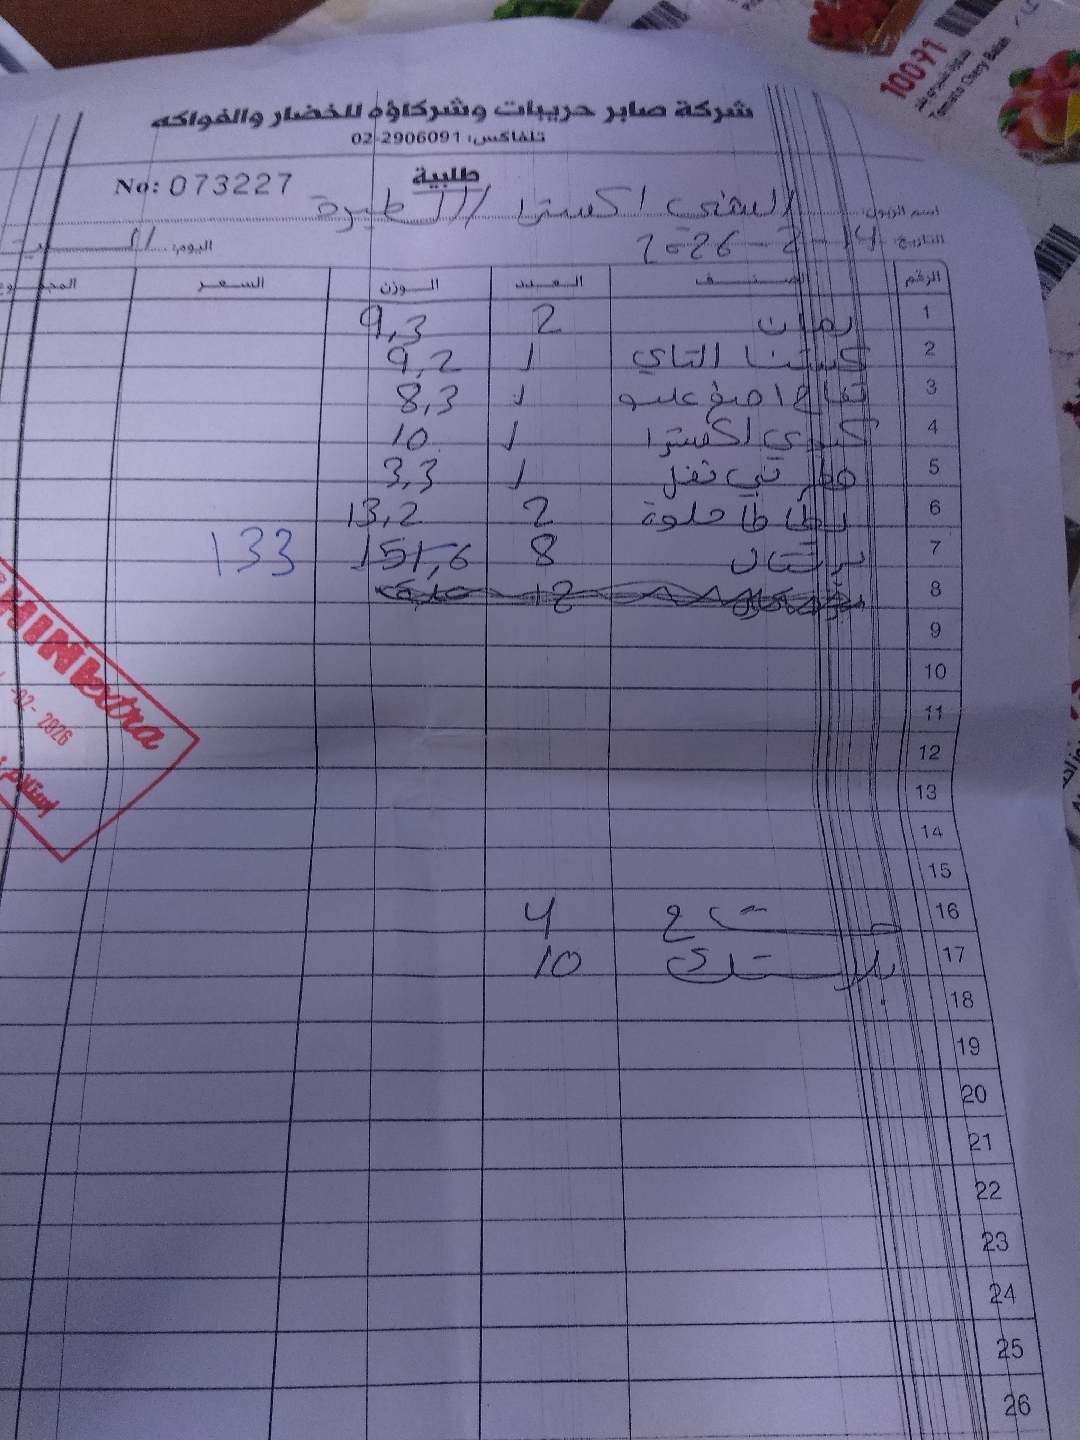 شركة صابر حريبات وشركاؤه للخضار والفواكه
تلفاكس: 02-2906091
طلبية
No: 073227
اسم الزبون: الشني اكسترا / الطيرة
التاريخ: 14-2-2026 اليوم: السبت
الرقم الصنف العدد الوزن السعر المجموع
1 رمان 2 9,3
2 كستنا 1 9,2
3 تفاح اصفر 1 8,3
4 كيوي اكسترا 1 10
5 1 3,3
6 بطاطا حلوة 2 13,2
7 برتقال 8 151,6 133
8
9
10
11
12
13
14
15
16 4
17 بلاستك 10
18
19
20
21
22
23
24
25
26
HINI extra
-02- 2026
استلام
10091
Tomato Cherry Baladi